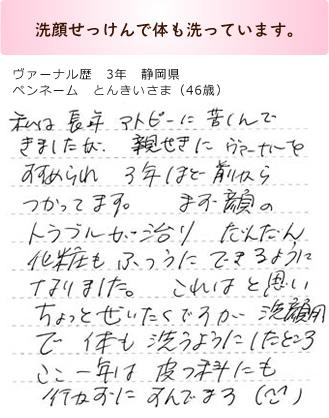 洗顔せっけんで体も洗っています。
ヴァーナル歴 3年 静岡県
ペンネーム とんきいさま（46歳）
私は長年アトピーに苦しんで
きましたが、親せきにヴァーナルを
すすめられ 3年ほど前から
つかってます。 まず顔の
トラブルが治り だんだん
化粧もふつうにできるように
なりました。 これはと思い
ちょっとぜいたくですが 洗顔用
で体も洗うようにしたところ
ここ一年は皮フ科にも
行かずにすんでます（^^）